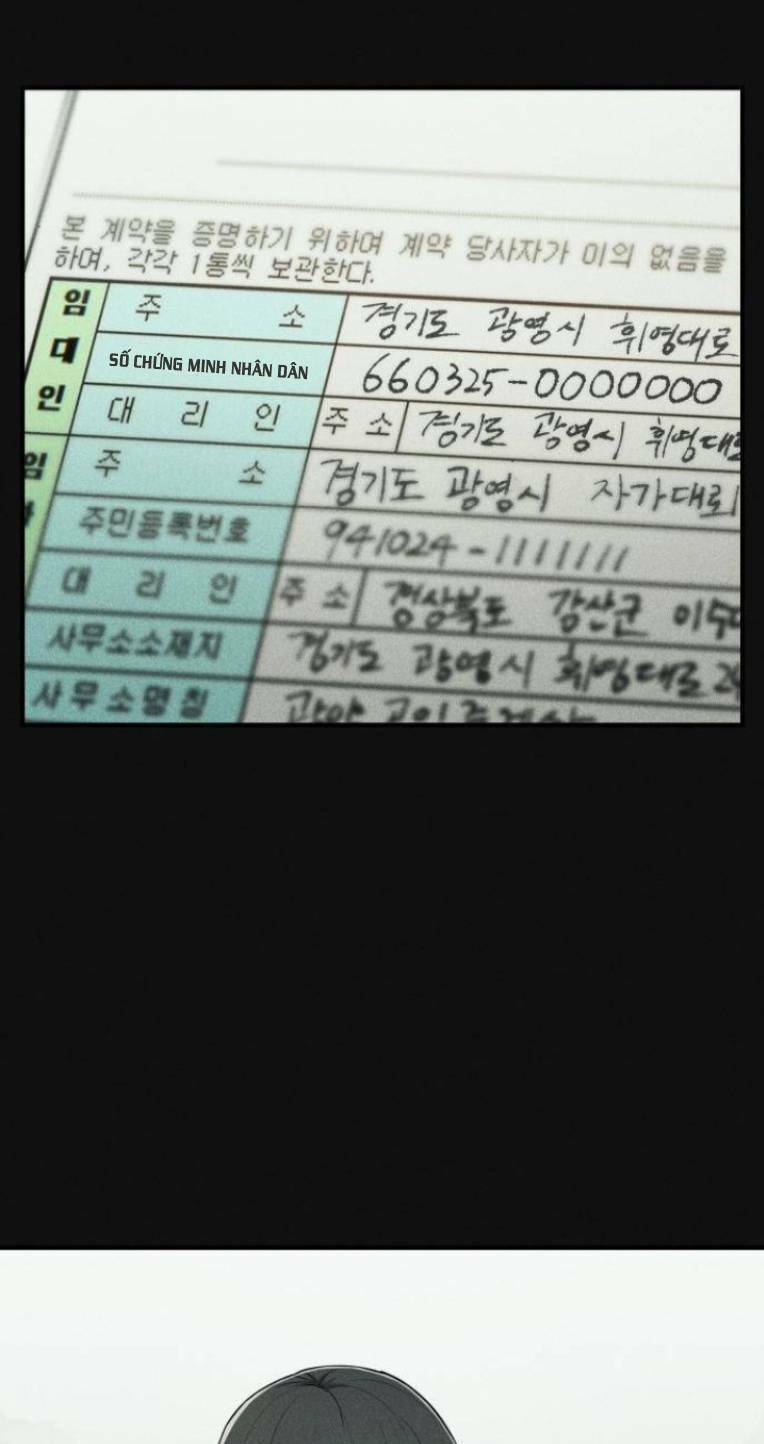 본 계약을 증명하기 위하여 계약 당사자가 이의 없음을
하며, 각각 1통씩 보관한다.
임대인 주 소 경기도 광영시 휘영대로
SỐ CHỨNG MINH NHÂN DÂN 660325-0000000
대 리 인 주 소 경기도 광영시 휘영대로
임 주 소 경기도 광영시 자가대로
주민등록번호 941024-1111111
대 리 인 주 소 경상북도 강산군
사무소소재지 경기도 광영시 휘영대로 24
사무소명칭